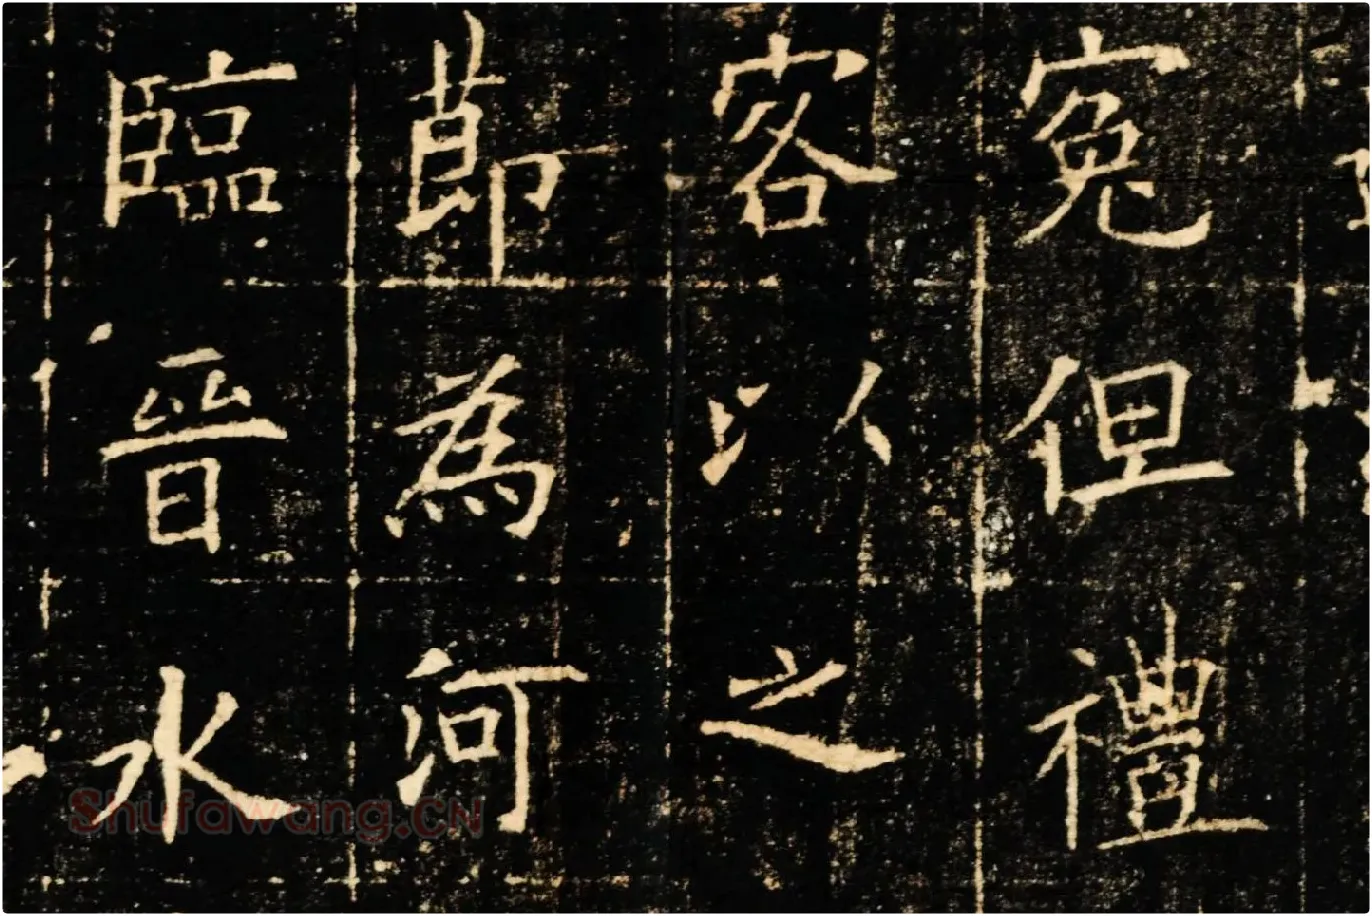 寃但禮
客以之
莭為河
臨晉水
Shufawang.CN